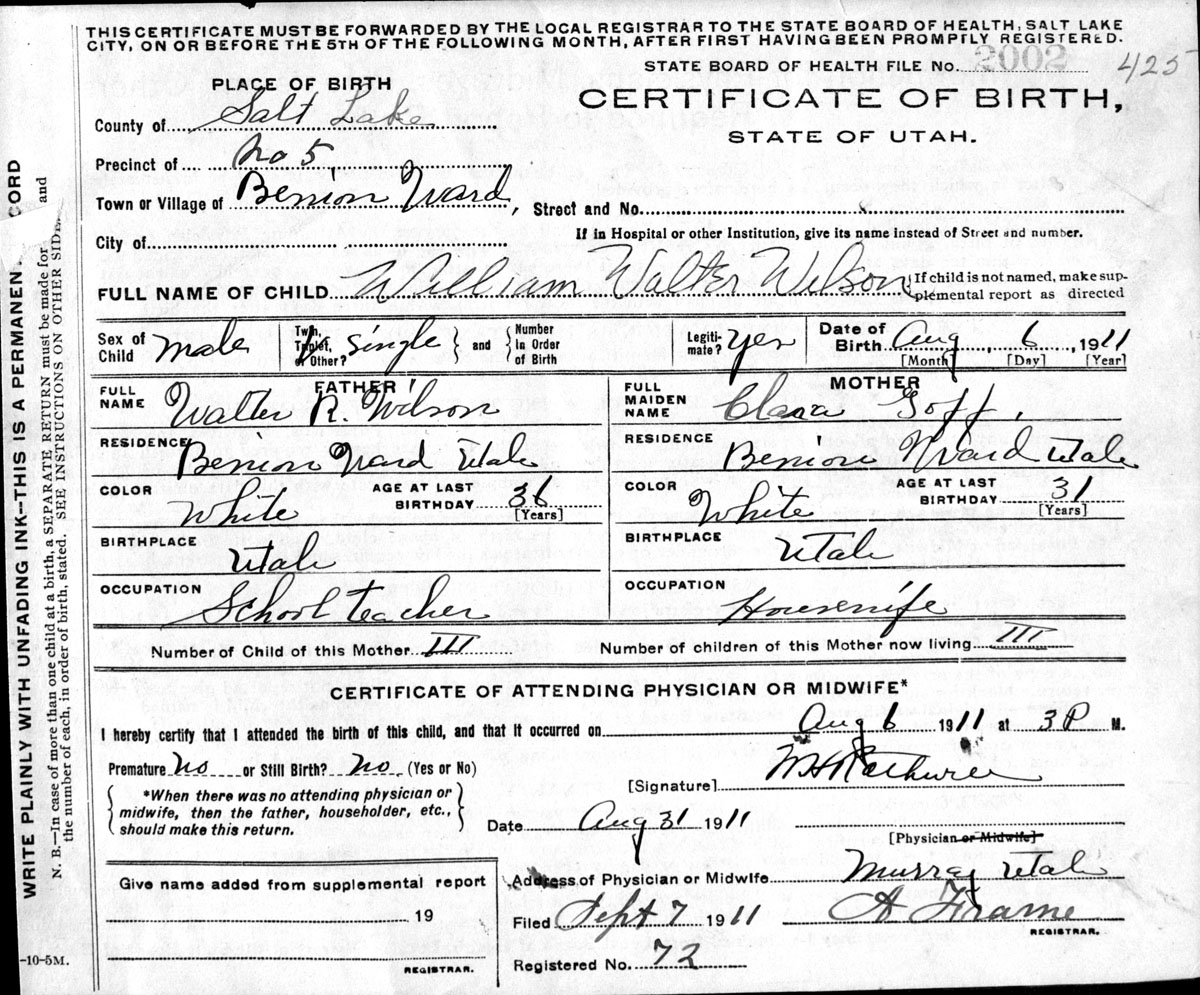 THIS CERTIFICATE MUST BE FORWARDED BY THE LOCAL REGISTRAR TO THE STATE BOARD OF HEALTH, SALT LAKE
CITY, ON OR BEFORE THE 5TH OF THE FOLLOWING MONTH, AFTER FIRST HAVING BEEN PROMPTLY REGISTERED.
STATE BOARD OF HEALTH FILE No. 2002 425
PLACE OF BIRTH
CERTIFICATE OF BIRTH,
STATE OF UTAH.
County of Salt Lake
Precinct of No 5
Town or Village of Benion Ward, Street and No.
City of If in Hospital or other Institution, give its name instead of Street and number.
FULL NAME OF CHILD William Walter Wilson { If child is not named, make sup-
plemental report as directed
Sex of Child male Twin, Triplet, or Other? single } and { Number In Order of Birth Legiti-mate? Yes Date of Birth Aug 6, 1911
[Month] [Day] [Year]
FATHER MOTHER
FULL NAME Walter R. Wilson FULL MAIDEN NAME Clara Goff.
RESIDENCE Benion Ward Utah RESIDENCE Benion Ward Utah
COLOR White AGE AT LAST BIRTHDAY 36 [Years] COLOR White AGE AT LAST BIRTHDAY 31 [Years]
BIRTHPLACE Utah BIRTHPLACE Utah
OCCUPATION School teacher OCCUPATION Housewife
Number of Child of this Mother III Number of children of this Mother now living III
CERTIFICATE OF ATTENDING PHYSICIAN OR MIDWIFE*
I hereby certify that I attended the birth of this child, and that it occurred on Aug 6 1911 at 3 P M.
Premature No or Still Birth? No (Yes or No)
[Signature]
{ *When there was no attending physician or
midwife, then the father, householder, etc.,
should make this return. }
Date Aug 31 1911
[Physician or Midwife]
Give name added from supplemental report
19
REGISTRAR.
Address of Physician or Midwife Murray Utah
Filed Sept 7 1911 A Frame
REGISTRAR.
Registered No. 72
-10-5M.
WRITE PLAINLY WITH UNFADING INK—THIS IS A PERMANEN CORD
N. B.—In case of more than one child at a birth, a SEPARATE RETURN must be made for and
the number of each, in order of birth, stated. SEE INSTRUCTIONS ON OTHER SIDE